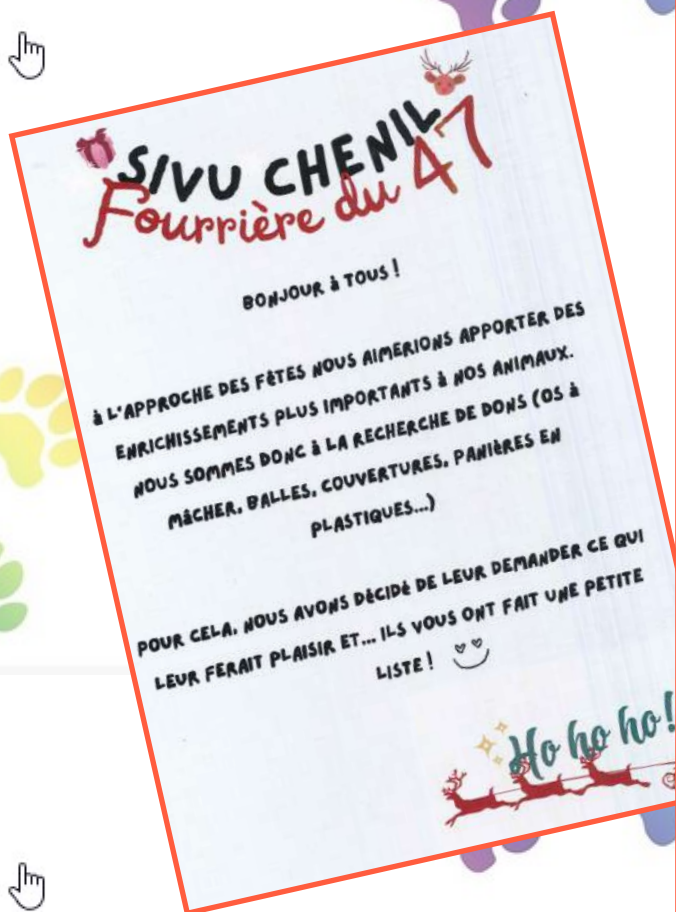 SIVU CHENIL
Fourrière du 47
BONJOUR à TOUS !
à L'APPROCHE DES FÊTES NOUS AIMERIONS APPORTER DES
ENRICHISSEMENTS PLUS IMPORTANTS à NOS ANIMAUX.
NOUS SOMMES DONC à LA RECHERCHE DE DONS (OS à
MâCHER, BALLES, COUVERTURES, PANIèRES EN
PLASTIQUES...)
POUR CELA, NOUS AVONS DéCIDé DE LEUR DEMANDER CE QUI
LEUR FERAIT PLAISIR ET... ILS VOUS ONT FAIT UNE PETITE
LISTE !
Ho ho ho !